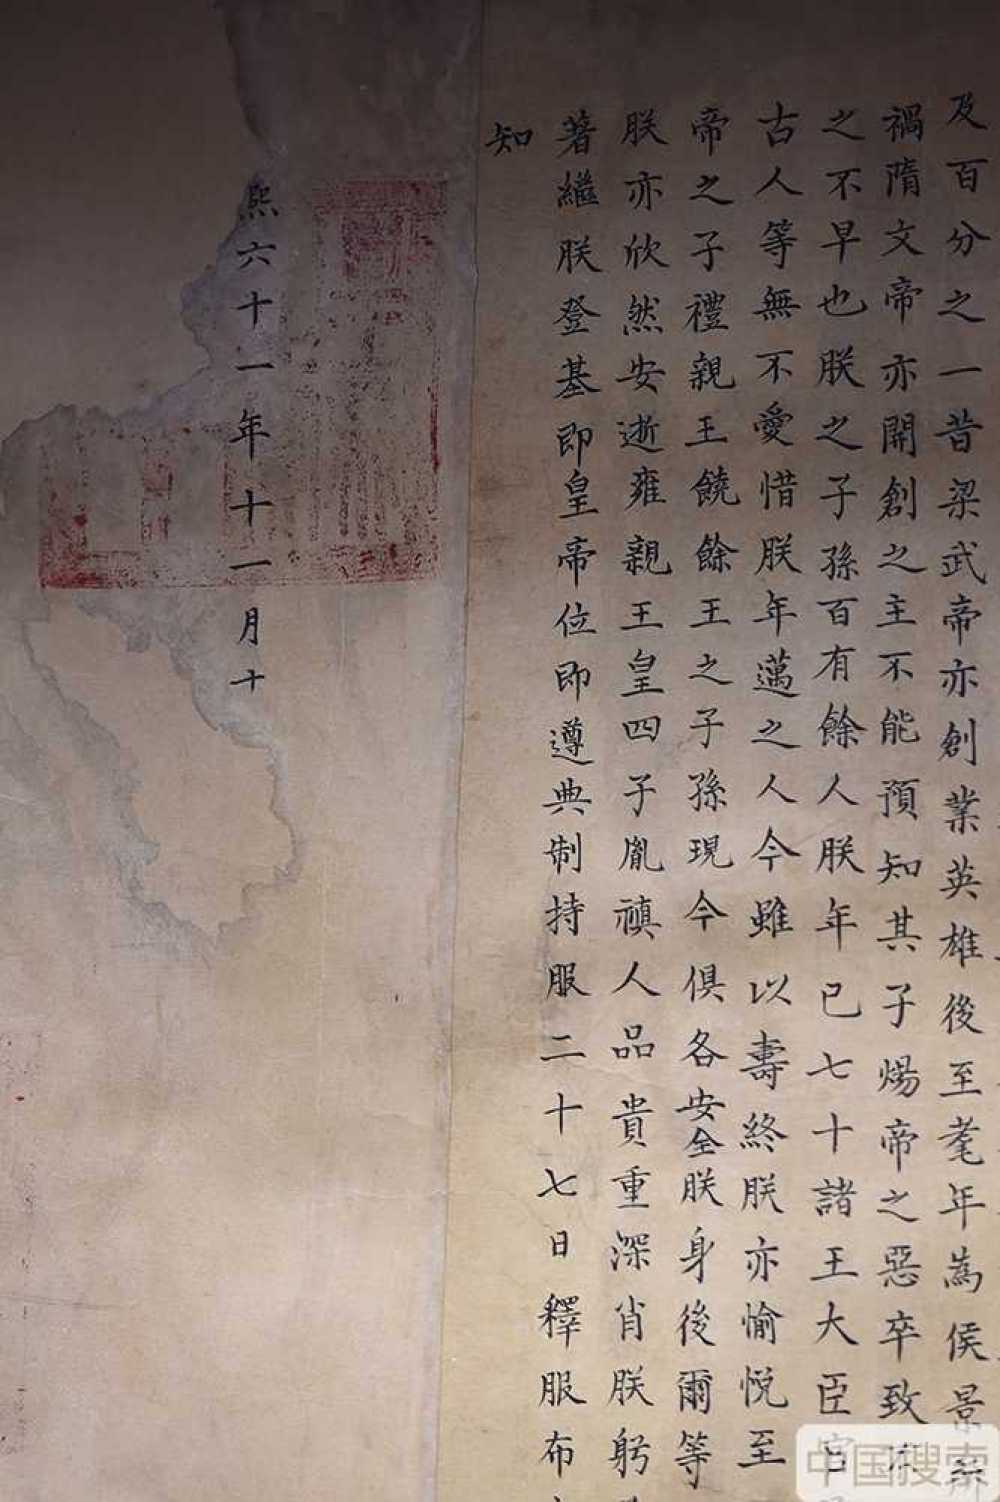 及百分之一昔梁武帝亦創業英雄後至耄年為侯景
禍隋文帝亦開創之主不能預知其子煬帝之惡卒致
之不早也朕之子孫百有餘人朕年已七十諸王大臣官
古人等無不愛惜朕年邁之人今雖以壽終朕亦愉悅至
帝之子禮親王饒餘王之子孫現今俱各安全朕身後爾等
朕亦欣然安逝雍親王皇四子胤禛人品貴重深肖朕躬
著繼朕登基即皇帝位即遵典制持服二十七日釋服布
知
熙六十一年十一月十
中国搜索